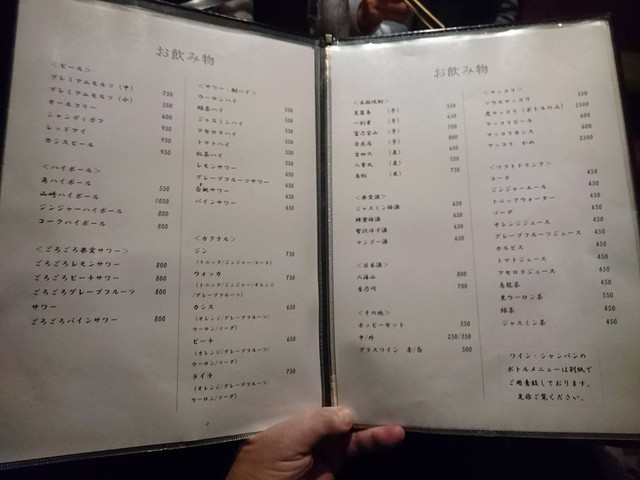 お飲み物
<ビール>
プレミアムモルツ (中) 750
プレミアムモルツ (小) 550
オールフリー 600
シャンディガフ 950
レッドアイ 950
カシスビール 950
<ハイボール>
角ハイボール 550
山崎ハイボール 1050
ジンジャーハイボール 800
コークハイボール 800
<ごろごろ果実サワー>
ごろごろレモンサワー 800
ごろごろピーチサワー 800
ごろごろグレープフルーツ 800
サワー
ごろごろパインサワー 800
<サワー・酎ハイ>
ウーロンハイ 550
緑茶ハイ 550
ジャスミンハイ 550
アセロラハイ
トマトハイ
紅茶ハイ
レモンサワー 650
グレープフルーツサワー 650
巨峰サワー 650
パインサワー 650
<カクテル>
ジン 750
(トニック/ジンジャー/コーク)
ウォッカ 750
(トニック/ジンジャー/オレンジ
/グレープフルーツ)
カシス 650
(オレンジ/グレープフルーツ/
ウーロン/ソーダ)
ピーチ 650
(オレンジ/グレープフルーツ/
ウーロン/ソーダ)
ライチ 750
(オレンジ/グレープフルーツ/
ウーロン/ソーダ)
お飲み物
<本格焼酎>
黒霧島 (芋) 550
一刻者 (芋) 700
富乃宝山 (芋) 800
(芋)
吉四六 (麦)
八重丸 (麦)
鳥飼 (米) 750
<果実酒>
ジャスミン梅酒 650
蜂蜜梅酒 650
贅沢ゆず酒 650
マンゴー酒 650
<日本酒>
八海山 800
吉乃川 700
<その他>
ホッピーセット 550
中/外 250/350
グラスワイン 赤/白 500
<マッコリ>
ソウルマッコリ 550
虎マッコリ (ボトルのみ) 2500
マッコリビール 600
マッコリカシス 600
マッコリ かめ 2300
<ソフトドリンク>
コーラ 450
ジンジャーエール 450
トニックウォーター 450
ソーダ 450
オレンジジュース 450
グレープフルーツジュース 450
カルピス 450
トマトジュース 450
アセロラジュース 450
烏龍茶 450
黒ウーロン茶 550
緑茶 450
ジャスミン茶 450
ワイン・シャンパンの
ボトルメニューは別紙で
ご用意しております。
是非ご覧ください。